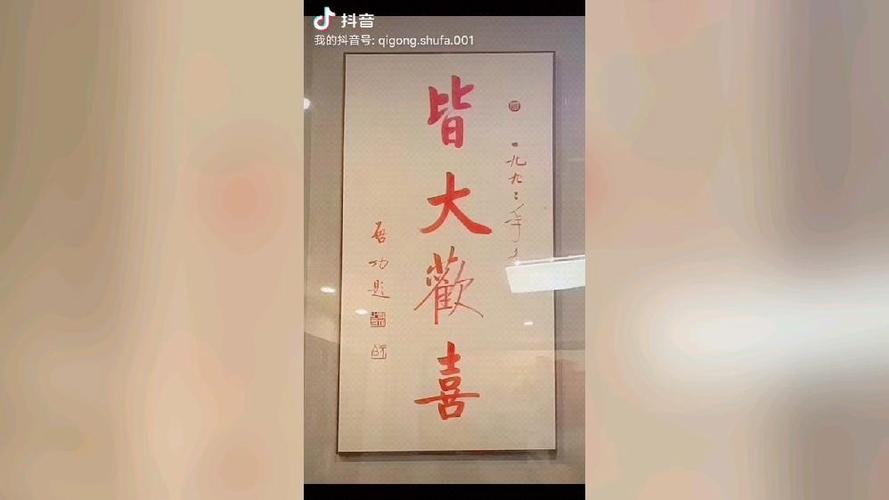 抖音
我的抖音号: qigong.shufa.001
一九九二年
皆大歡喜
启功题